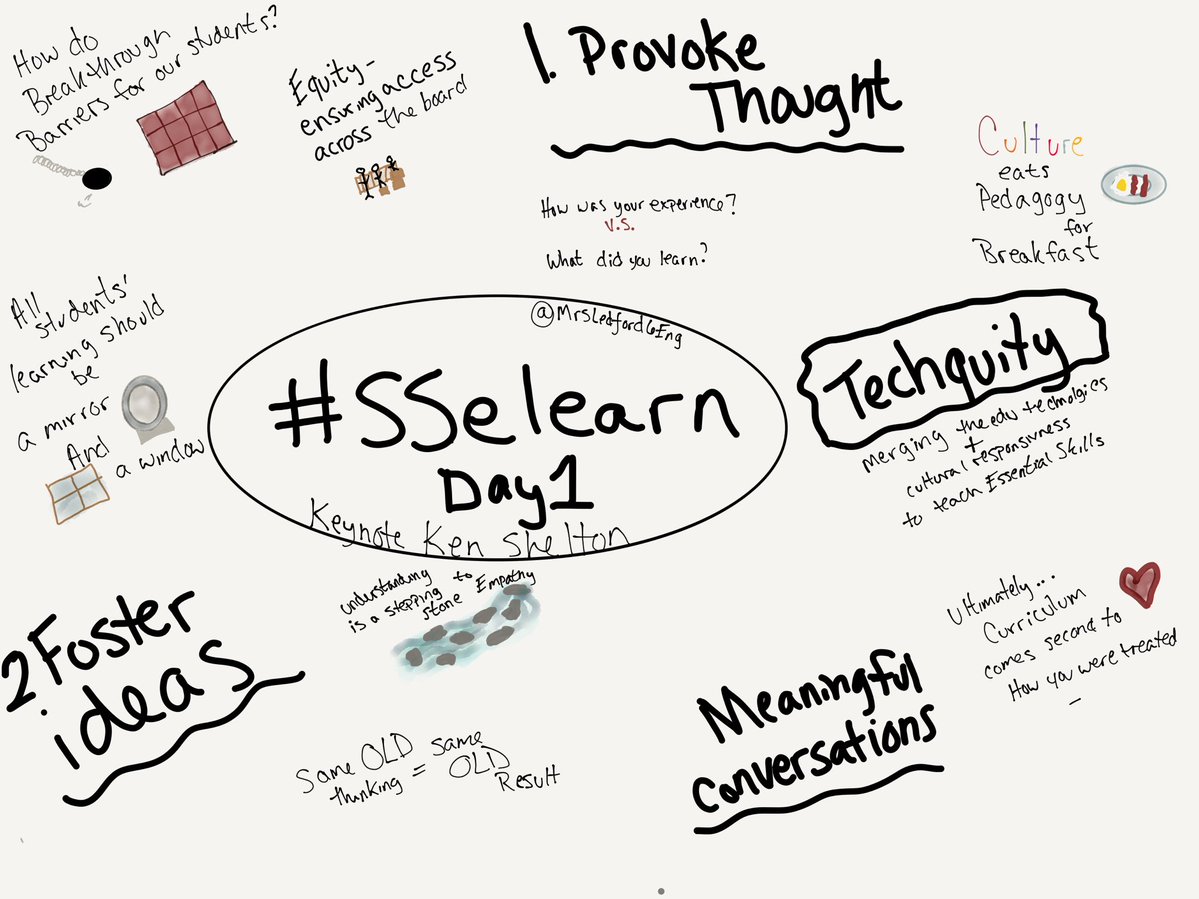 How do
Breakthrough
Barriers for our students?
Equity-
ensuring access
across the board
1. Provoke
Thought
How was your experience?
v.s.
What did you learn?
Culture
eats
Pedagogy
for
Breakfast
All
students'
learning should
be
a mirror
And
a window
@MrsLedford6Eng
#SSelearn
Day1
Keynote Ken Shelton
Techquity
merging the edu technolgies
+
cultural responsivness
to teach Essential Skills
understanding
is a stepping to
stone Empathy
2 Foster
ideas
Same OLD
thinking = same
OLD
Result
Meaningful
conversations
Ultimately...
Curriculum
comes second to
How you were treated